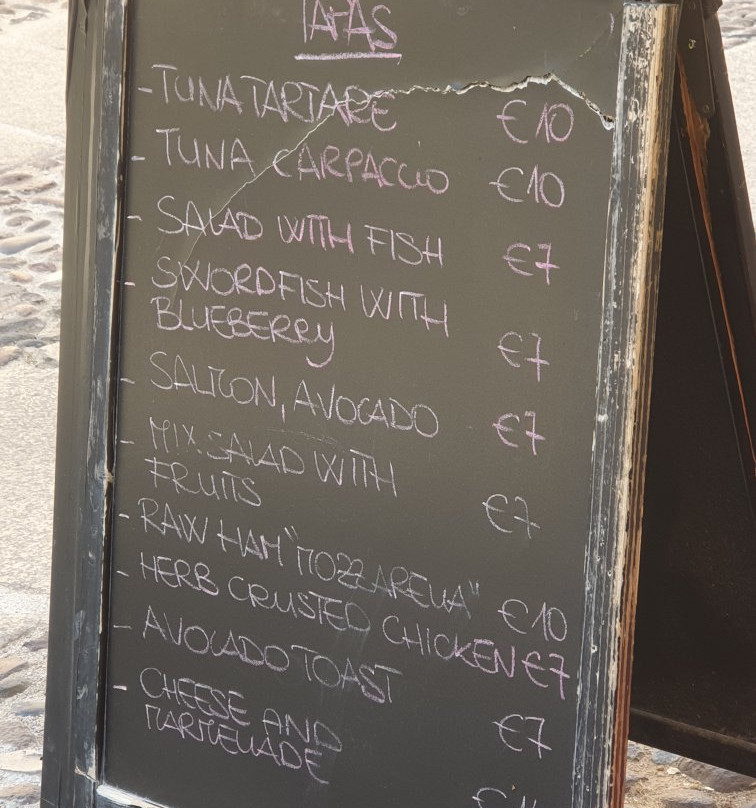 TAPAS
- TUNA TARTARE €10
- TUNA CARPACCIO €10
- SALAD WITH FISH €7
- SWORDFISH WITH
BLUEBERRY €7
- SALMON, AVOCADO €7
- MIX SALAD WITH
FRUITS €7
- RAW HAM "MOZZARELLA" €10
- HERB CRUSTED CHICKEN €7
- AVOCADO TOAST €7
- CHEESE AND
MARMELLADE